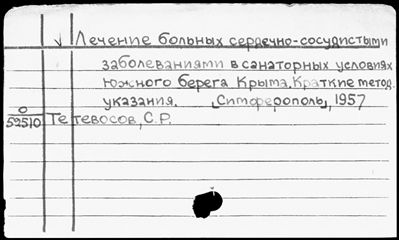 Лечение больных сердечно-сосудистыми
заболеваниями в санаторных условиях
Южного берега Крыма. Краткие метод.
указания. [Симферополь], 1957
О
59510 Тетевосов, С.Р.